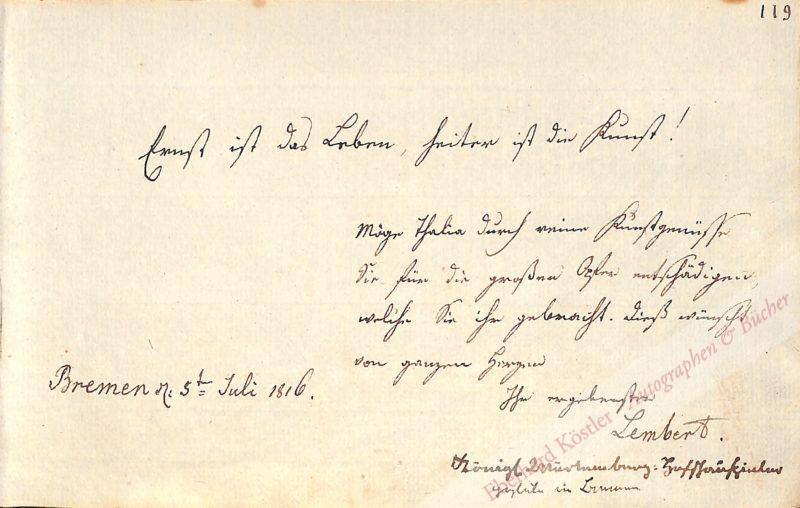 119
Ernst ist das Leben, heiter ist die Kunst!
Möge Thalia durch reine Kunstgenüsse
Sie für die großen Opfer entschädigen,
welche Sie ihr gebracht. Dieß wünscht
von ganzen Herzen
Bremen d. 5ten Juli 1816.
Ihr ergebenster
Lembert.
Königl. Würtemberg. Hofschauspieler
in Bremen
Eberhard Köstler Autographen & Bücher